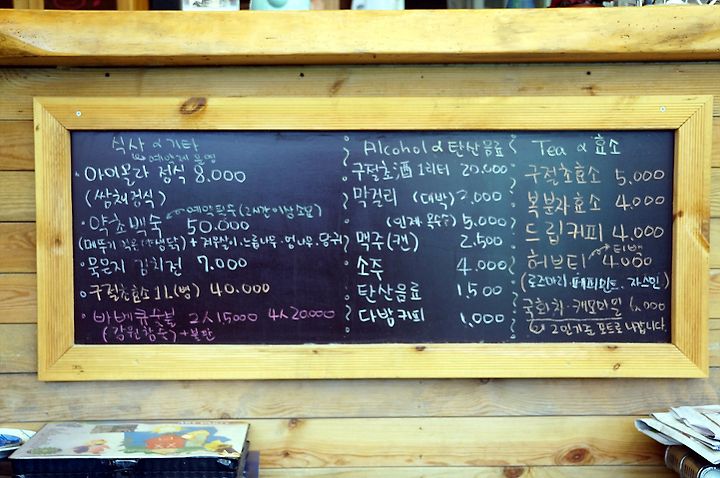 식사 & 기타
예약제 운영
아이올라 정식 8.000
(쌈채정식)
약초백숙 50.000
예약필독(2시간이상소요)
묵은지 김치전 7.000
구절초효소 1L(병) 40.000
바베큐숯불 2人15000 4人20.000
(강원참숯)+불판
Alcohol & 탄산음료
구절초酒 1리터 20.000
막걸리 (대박) 3,000
(인제 옥수수) 5.000
맥주(캔) 2.500
소주 4.000
탄산음료 1.500
다방커피 1,000
Tea & 효소
구절초효소 5,000
복분자효소 4.000
드립커피 4.000
티백
허브티 4.000
(로즈마리.페퍼민트.자스민)
국화차.캐모마일
2인기준 포트로 나갑니다.